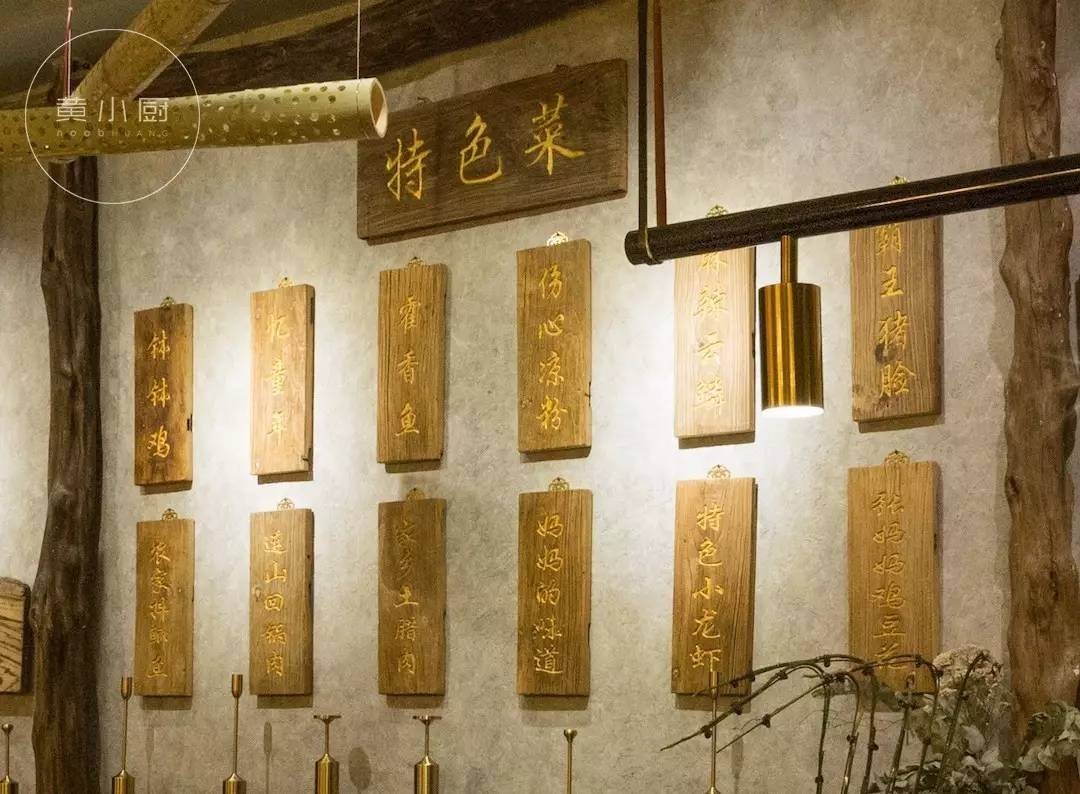 黄小厨
noobHUANG
特色菜
钵钵鸡
忆童年
霍香鱼
伤心凉粉
麻辣云
霸王猪脸
农家鱼
连山回锅肉
家乡土腊肉
妈妈的味道
特色小龙虾
张妈妈鸡豆花